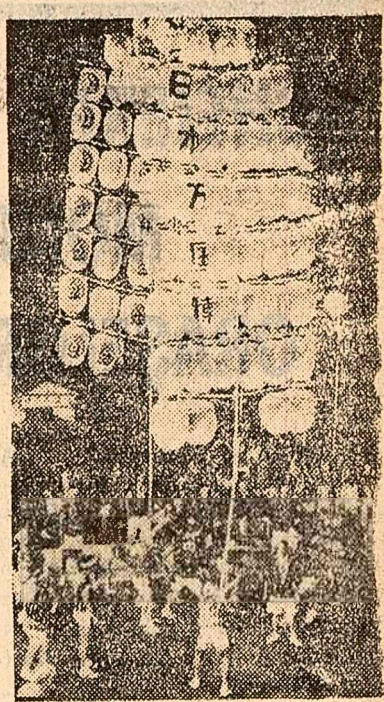 日本万国博